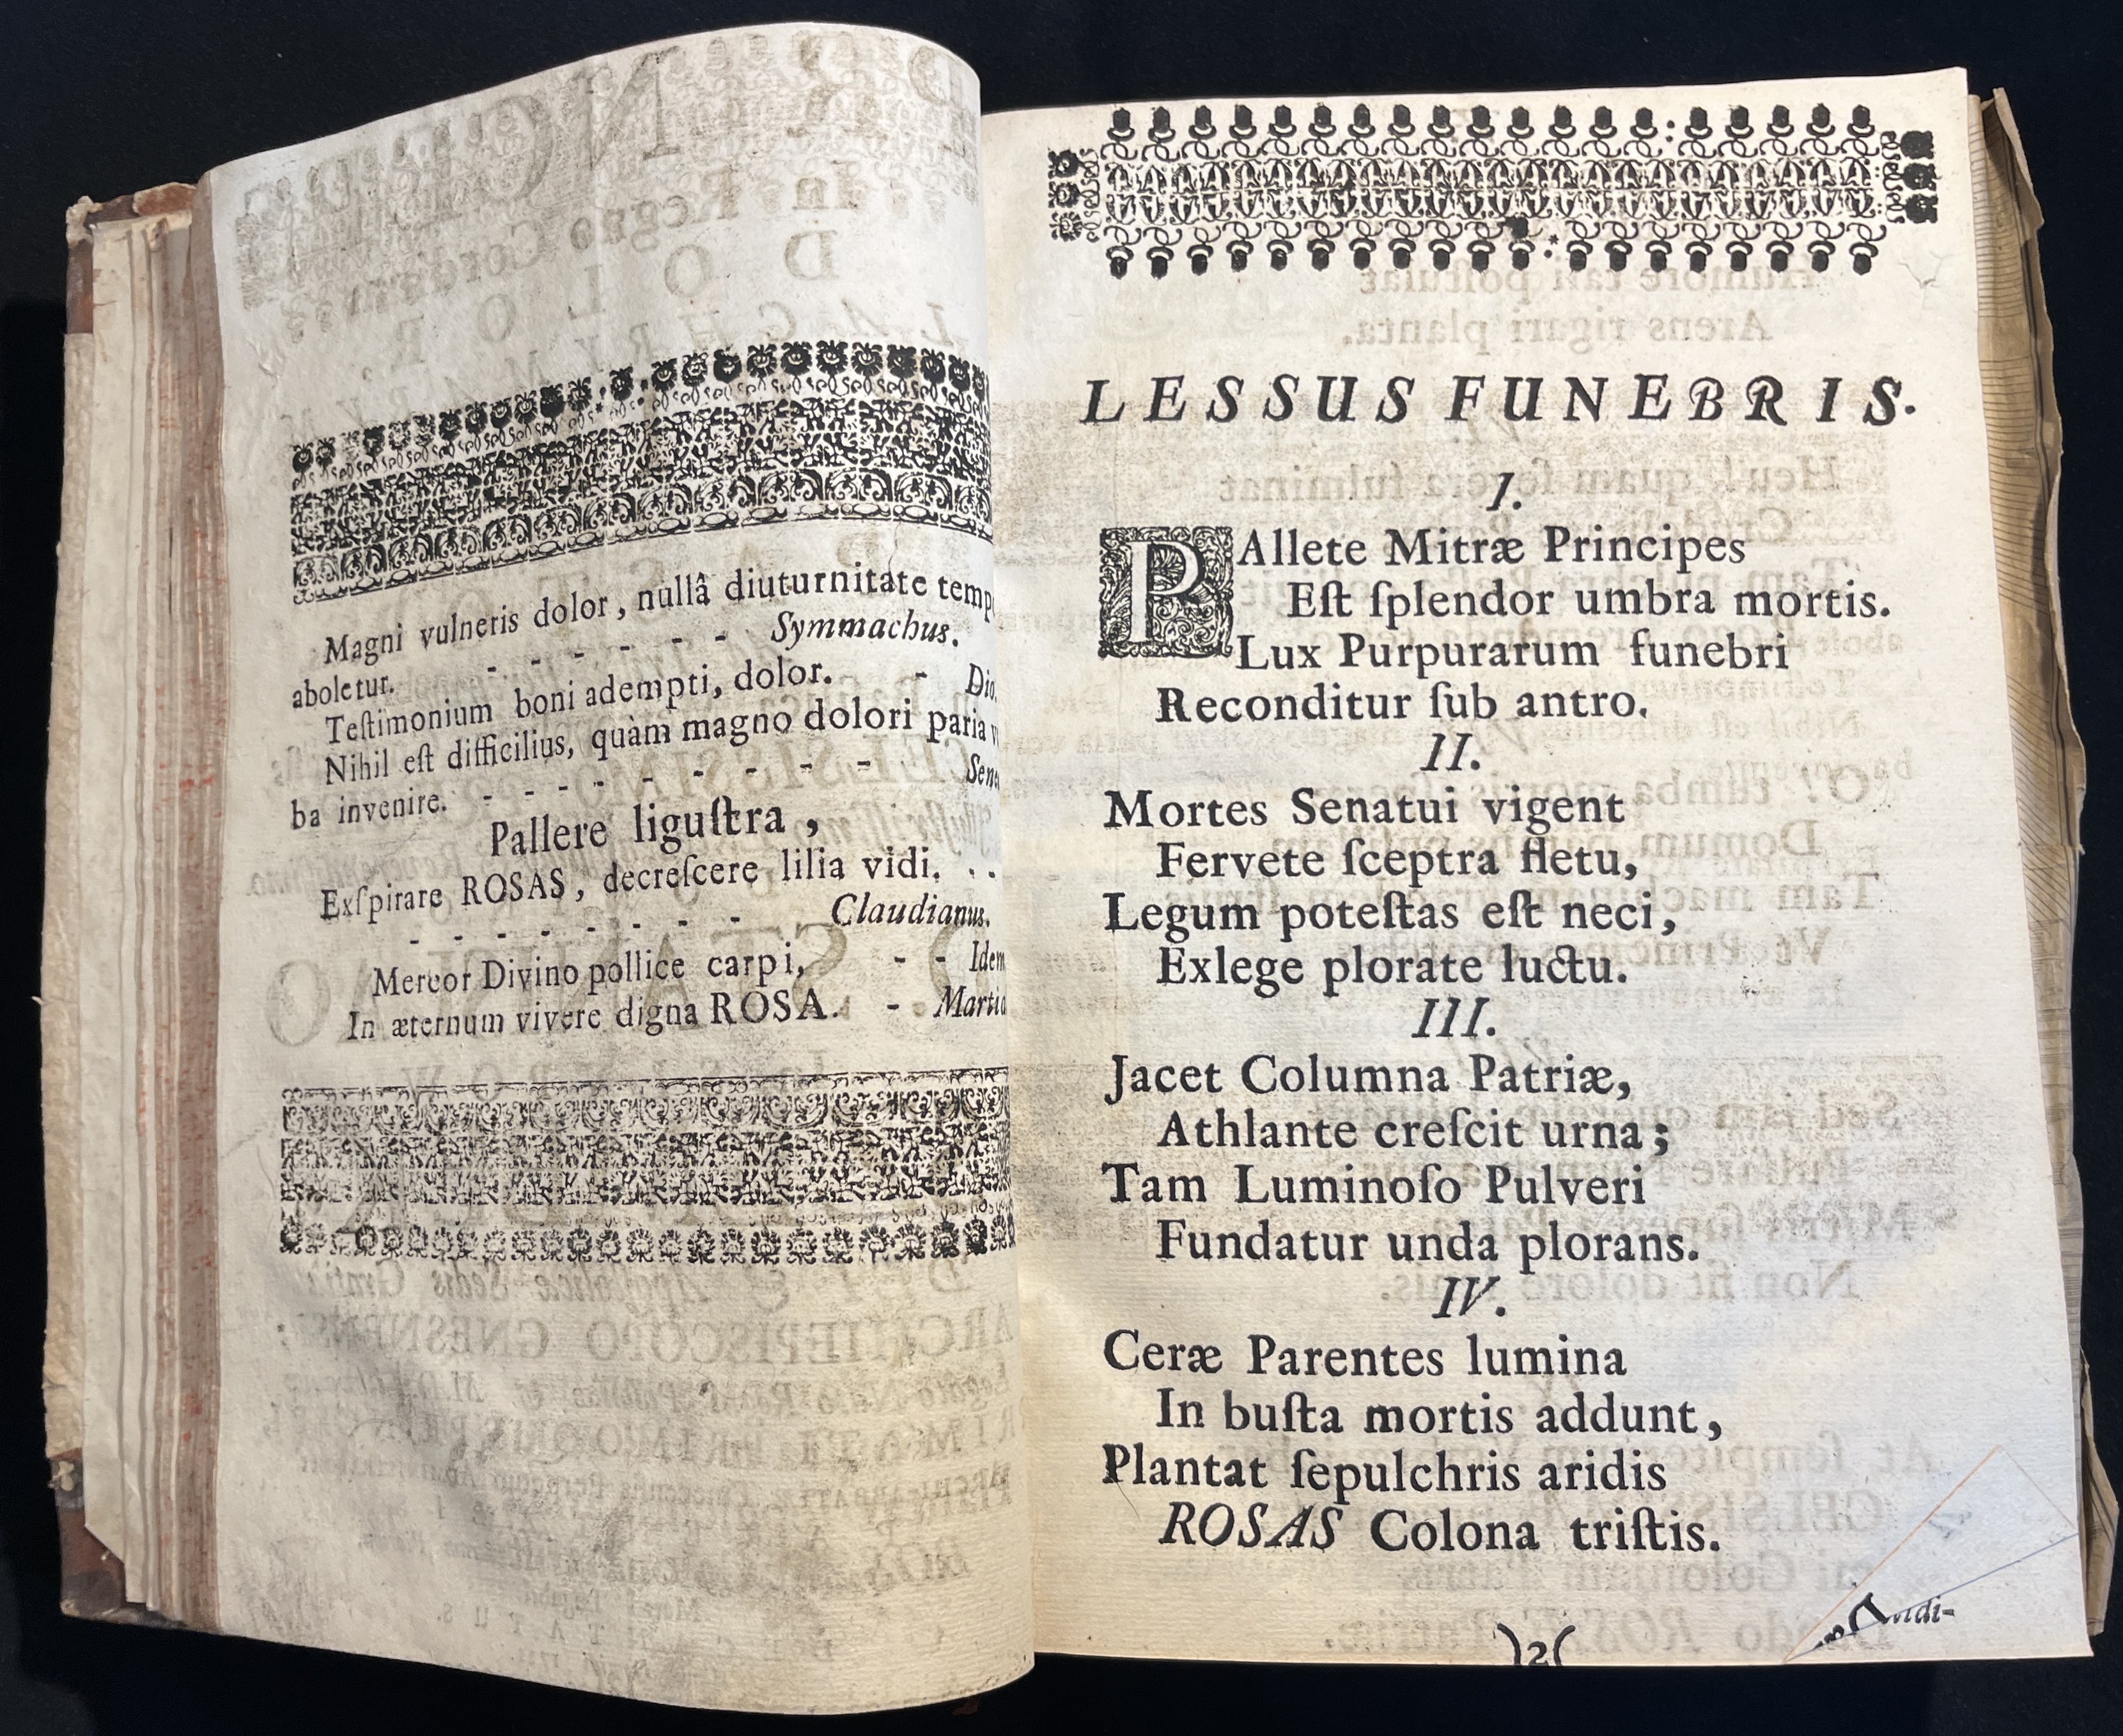 Magni vulneris dolor, nullâ diuturnitate temp
aboletur. - - - - - - Symmachus.
Teſtimonium boni adempti, dolor. - Dio.
Nihil eſt difficilius, quàm magno dolori paria v
ba invenire. - - - - - - - - Sene
Pallere liguſtra,
Exſpirare ROSAS, decreſcere lilia vidi. . .
- - - - - - - - Claudianus.
Mereor Divino pollice carpi, - - Idem
In æternum vivere digna ROSA. - Martia
LESSUS FUNEBRIS.
I.
PAllete Mitræ Principes
Eſt ſplendor umbra mortis.
Lux Purpurarum funebri
Reconditur ſub antro.
II.
Mortes Senatui vigent
Fervete ſceptra fletu,
Legum poteſtas eſt neci,
Exlege plorate luctu.
III.
Jacet Columna Patriæ,
Athlante creſcit urna;
Tam Luminoſo Pulveri
Fundatur unda plorans.
IV.
Ceræ Parentes lumina
In buſta mortis addunt,
Plantat ſepulchris aridis
ROSAS Colona triſtis.
)2(